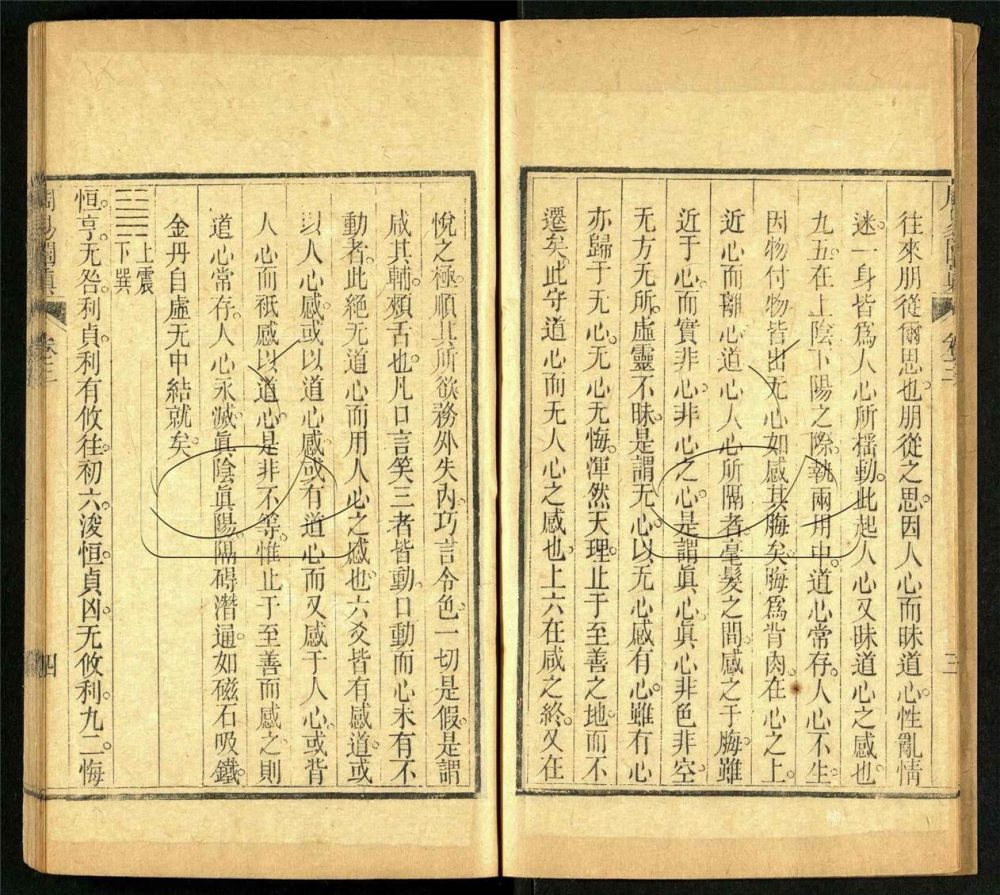 往來朋從爾思也朋從之思因人心而昧道心性亂情
迷一身皆爲人心所搖動此起人心又昧道心之感也
九五在上陰下陽之際執兩用中道心常存人心不生
因物付物皆出无心如感其脢矣脢爲背肉在心之上
近心而離心道心人心所隔者毫髮之間感之于脢雖
近于心而實非心非心之心是謂眞心眞心非色非空
无方无所虛靈不昧是謂无心以无心感有心雖有心
亦歸于无心无心无悔渾然天理止于至善之地而不
遷矣此守道心而无人心之感也上六在咸之終又在
三
悅之極順其所欲務外失內巧言令色一切是假是謂
咸其輔頰舌也凡口言笑三者皆動口動而心未有不
動者此絕无道心而用人心之感也六爻皆有感道或
以人心感或以道心感或有道心而又感于人心或背
人心而祇感以道心是非不等惟止于至善而感之則
道心常存人心永滅眞陰眞陽隔碍潛通如磁石吸鐵
金丹自虛无中結就矣
上震
下巽
恒亨无咎利貞利有攸往初六浚恒貞凶无攸利九二悔
卷三
四